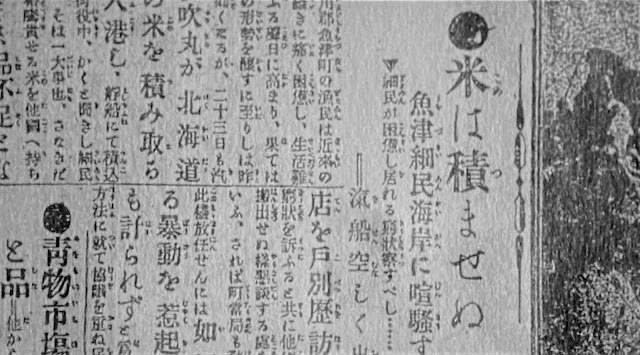 ●米は積ませぬ
魚津細民海岸に喧騒す
▼細民が困憊し居れる窮状察すべし……
＝汽船空しく出
川郡魚津町の漁民は近来の
に痛く困憊し、生活難
る翌日に高まり、果ては
の形勢を醸すに至りしは昨
如くなるが、二十三日も汽
吹丸が北海道
の米を積み取る
入港し、艀船にて積込
荷役中、かくと聞きし細民
そは一大事也、さなきだ
貴せる米を他国へ持ち
品不足とな
店を戸別歴訪
窮状を訴ふると共に他
搬出せぬ様懇談する處
いふ、されば町當局も
此儘放任せんには如
る暴動を惹起
も計られずと
方法に就て協議を重ね居
●青物市場
と品
他から